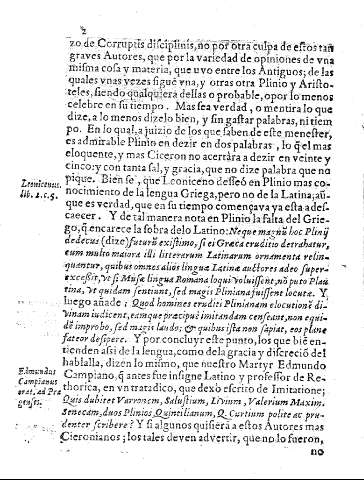 2
zo de Corruptis disciplinis, no por otra culpa de estos tan
graves Autores, que por la variedad de opiniones de vna
misma cosa y materia, que uvo entre los Antiguos; de las
quales vnas vezes sigue vna, y otras otra Plinio y Aristo-
teles, siendo qualquiera dellas o probable, o por lo menos
celebre en su tiempo. Mas sea verdad, o mentira lo que
dize, a lo menos dizelo bien, y sin gastar palabras, ni tiem
po. En lo qual, a juizio de los que saben de este menester,
es admirable Plinio en dezir en dos palabras, lo q̃ el mas
eloquente, y mas Ciceron no acertàra a dezir en veinte y
cinco: y con tanta sal, y gracia, que no dize palabra que no
pique. Bien se, que Leoniceno desseò en Plinio mas co-
nocimiento de la lengua Griega, pero no de la Latina; aũ
que es verdad, que en su tiempo començava ya esta a des-
caecer. Y de tal manera nota en Plinio la falta del Grie-
go, q̃ encarece la sobra delo Latino: Neque magnũ hoc Plinij
dedecus (dize) futurũ existimo, si ei Græca eruditio detrahatur,
eum multo maiora illi litterarum Latinarum ornamenta relin-
quantur, quibus omnes alios linguæ Latinæ auctores adeo super-
excessit, vt si Musæ lingua Romana loqui voluissent, nõ puto Plau
tina, vt quidam sentiunt, sed magis Pliniana fuissent locutæ. Y
luego añade: Quod homines eruditi Plinianam elocutionẽ di-
vinam iudicent, eamque præcipuè imitandam censeant, non equi-
dẽ improbo, sed magis laudo; & quibus ista non sapiat, eos plane
fateor desipere. Y por concluyr este punto, los que biẽ en-
tienden assi de la lengua, como dela gracia y discreciõ del
hablalla, dizen lo mismo, que nuestro Martyr Edmundo
Campiano, q̃ aces fue insigne Latino y professor de Re-
thorica, en vn tratadico, que dexò escrito de Imitatione;
Quis dubitet Varronem, Salustium, Livium, Valerium Maxim.
Senecam, duos Plinios, Quintilianum, Q. Curtium polite ac pru-
denter scribere? Y si algunos quisierã a estos Autores mas
Ciceronianos; los tales deven advertir, que no lo fueron,
no
Leonicenus.
lib. 2. c. 5.
Edmundus
Campianus
orat. ad Pra
genses.